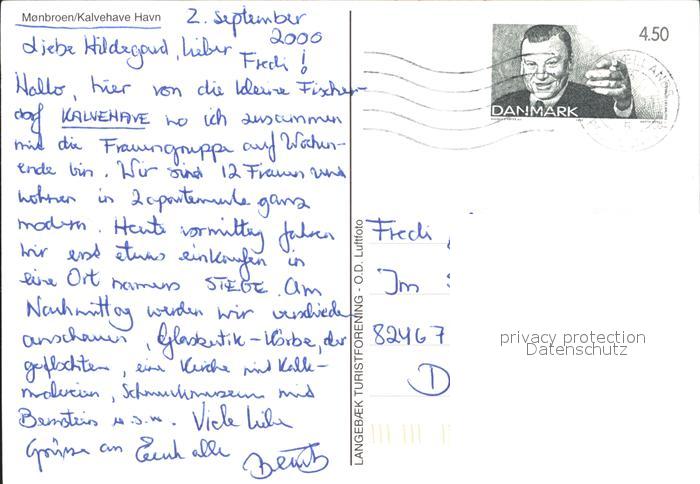 Mønbroen/Kalvehave Havn
2. September
2000
Liebe Hildegard, lieber
Fredi!
Hallo, hier von die kleine Fischer-
dorf KALVEHAVE wo ich zusammen
mit die Frauengruppe auf Wochen-
ende bin. Wir sind 12 Frauen und
wohnen in 2 apartemente ganz
modern. Heute vormittag fahren
wir erst etwas einkaufen in
eine Ort namens STEGE. Am
Nachmittag werden wir verschiede
anschauen, Glasbutik - Körbe, der
geflochten, eine Kirche mit Kalk-
malereien, Schmuckmuseum mit
Bernstein u.s.w. Viele liebe
Grüsse an Euch alle
DANMARK
4.50
LANGEBÆK TURISTFORENING - O.D. Luftfoto
Fredi
Im
82467
D
privacy protection
Datenschutz